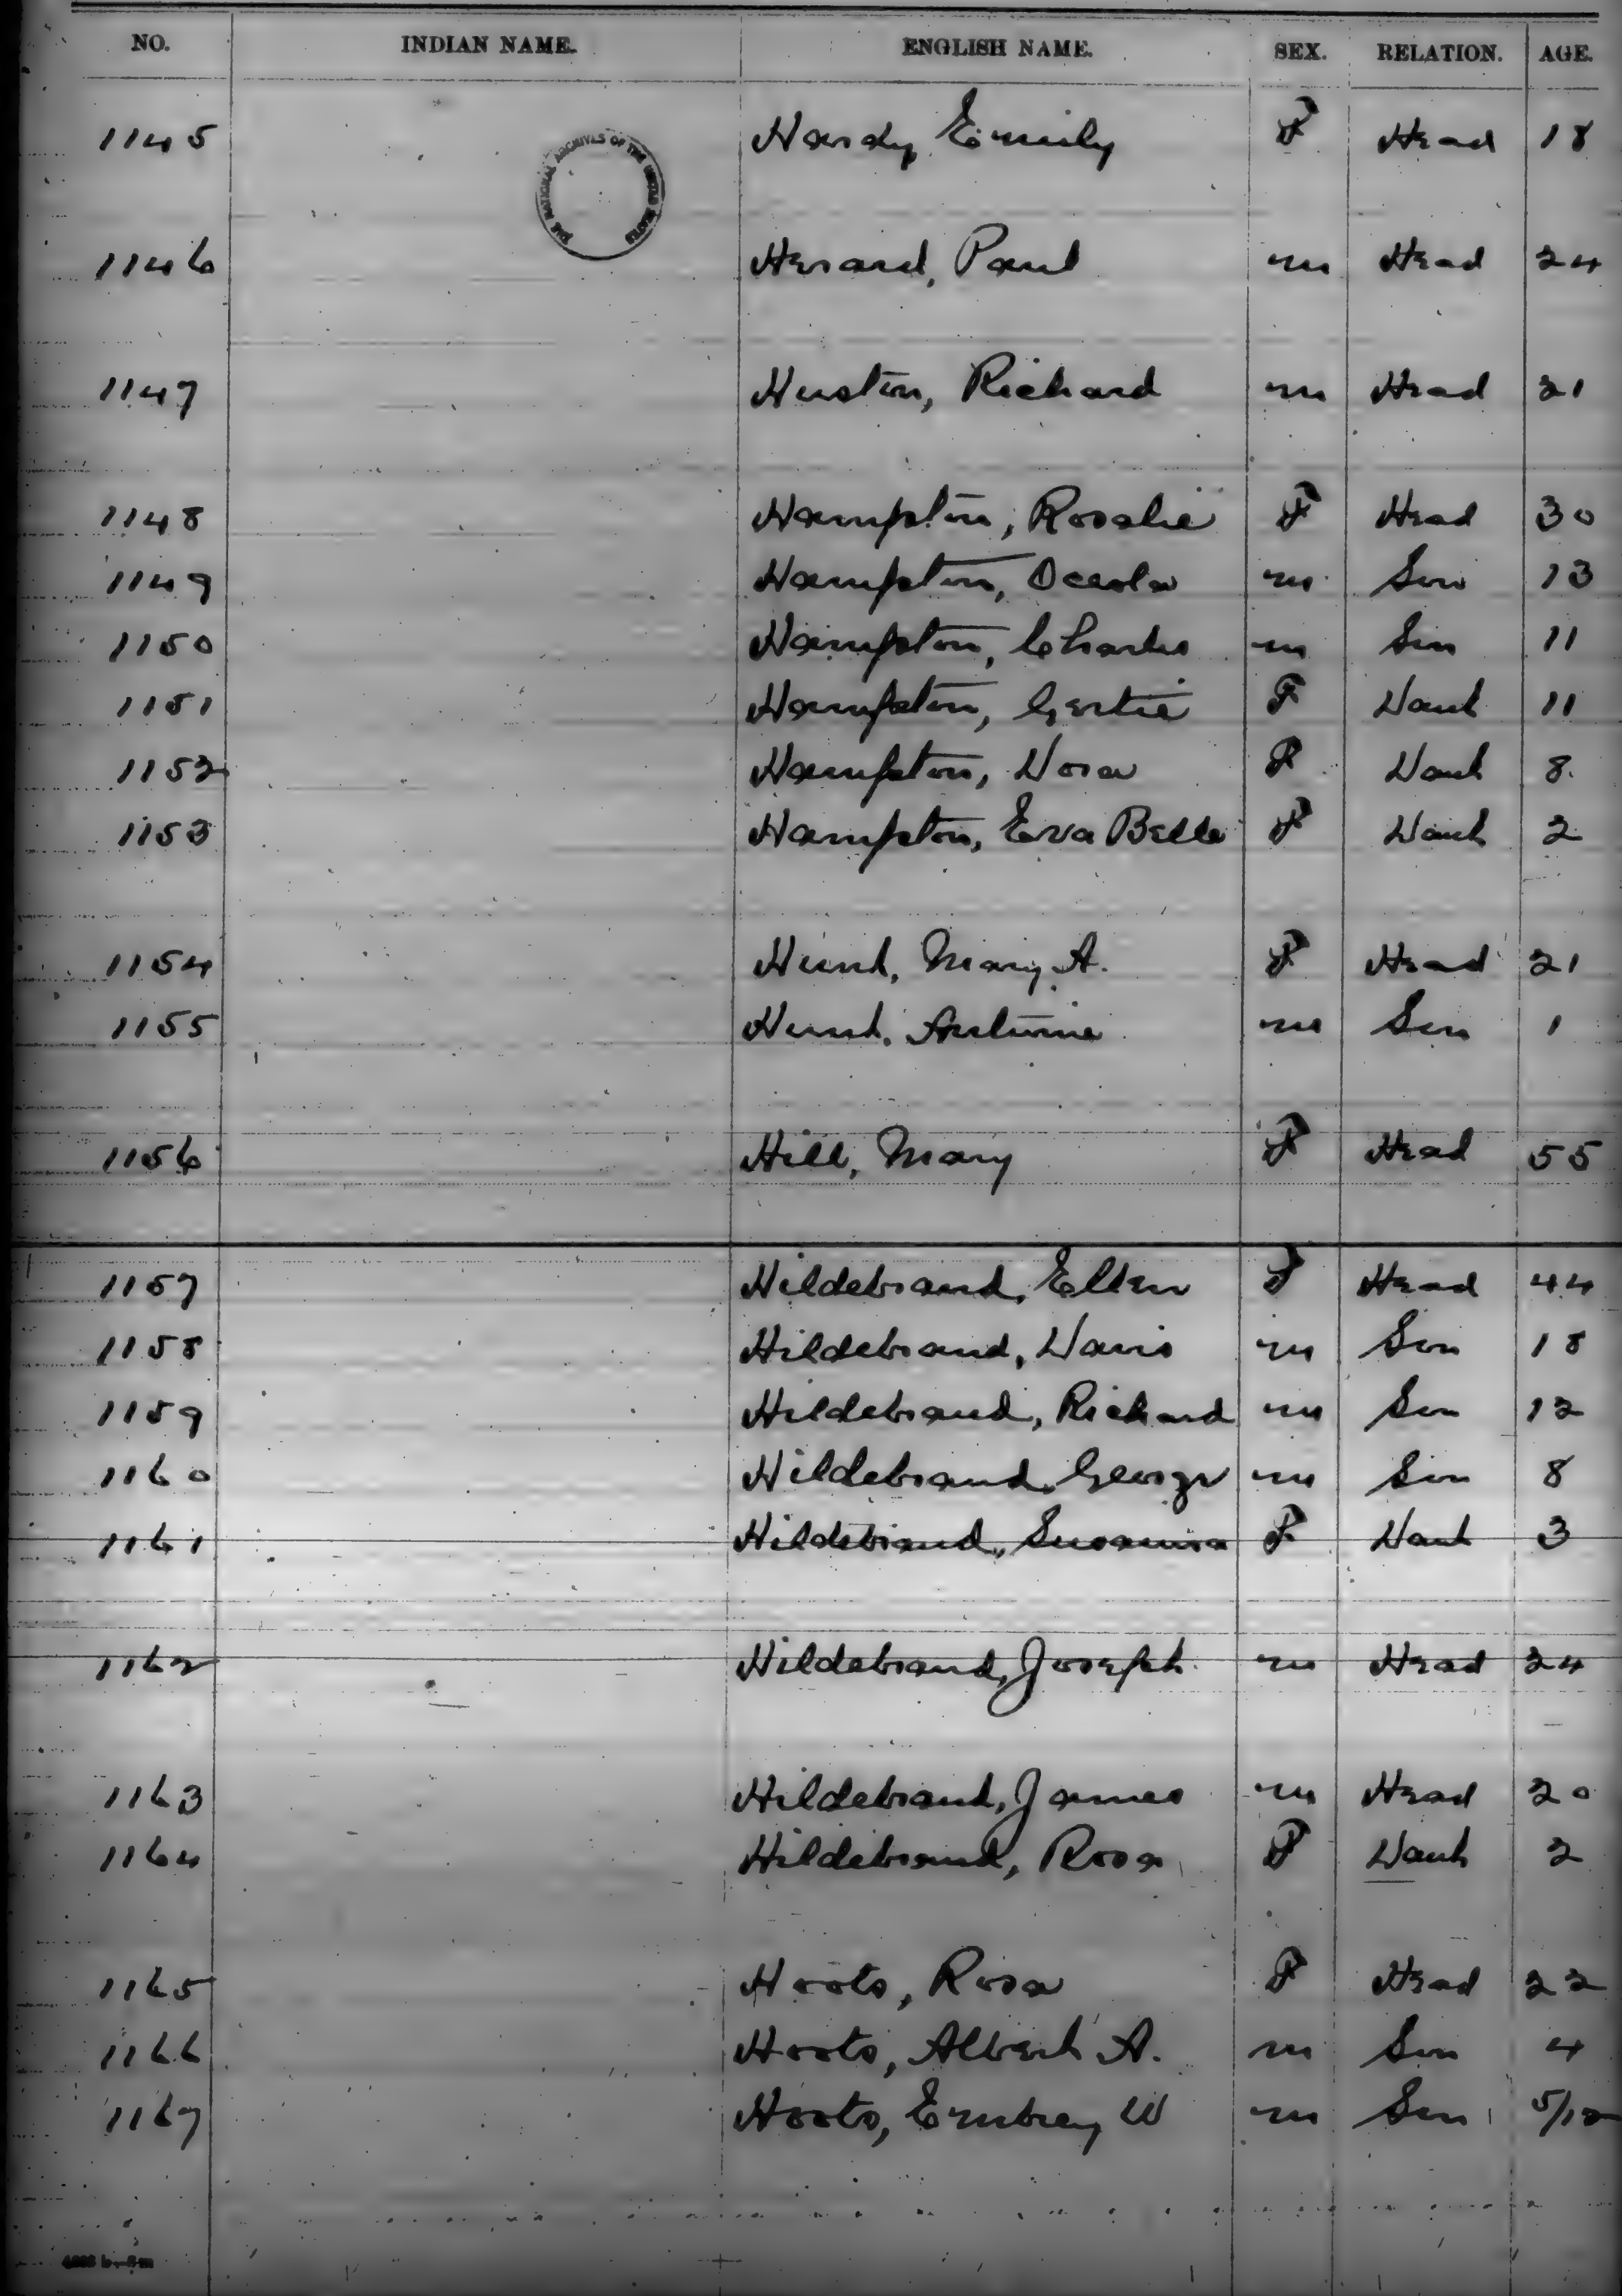 NO. INDIAN NAME. ENGLISH NAME. SEX. RELATION. AGE.
THE NATIONAL ARCHIVES OF THE UNITED STATES
1145 Hardy, Emily F Head 18
1146 Herard, Paul m Head 24
1147 Huston, Richard m Head 21
1148 Hampton, Rosalie F Head 30
1149 Hampton, Oceola m Son 13
1150 Hampton, Charles m Son 11
1151 Hampton, Gertie F Daut 11
1152 Hampton, Dora F Daut 8
1153 Hampton, Eva Belle F Daut 2
1154 Hunt, Mary A. F Head 21
1155 Hunt, Antoine m Son 1
1156 Hill, Mary F Head 55
1157 Hildebrand, Ellen F Head 44
1158 Hildebrand, Davis m Son 18
1159 Hildebrand, Richard m Son 12
1160 Hildebrand, George m Son 8
1161 Hildebrand, Susanna F Daut 3
1162 Hildebrand, Joseph m Head 24
1163 Hildebrand, James m Head 20
1164 Hildebrand, Rosa F Daut 2
1165 Hoots, Rosa F Head 22
1166 Hoots, Albert A. m Son 4
1167 Hoots, Embrey W m Son 5/12